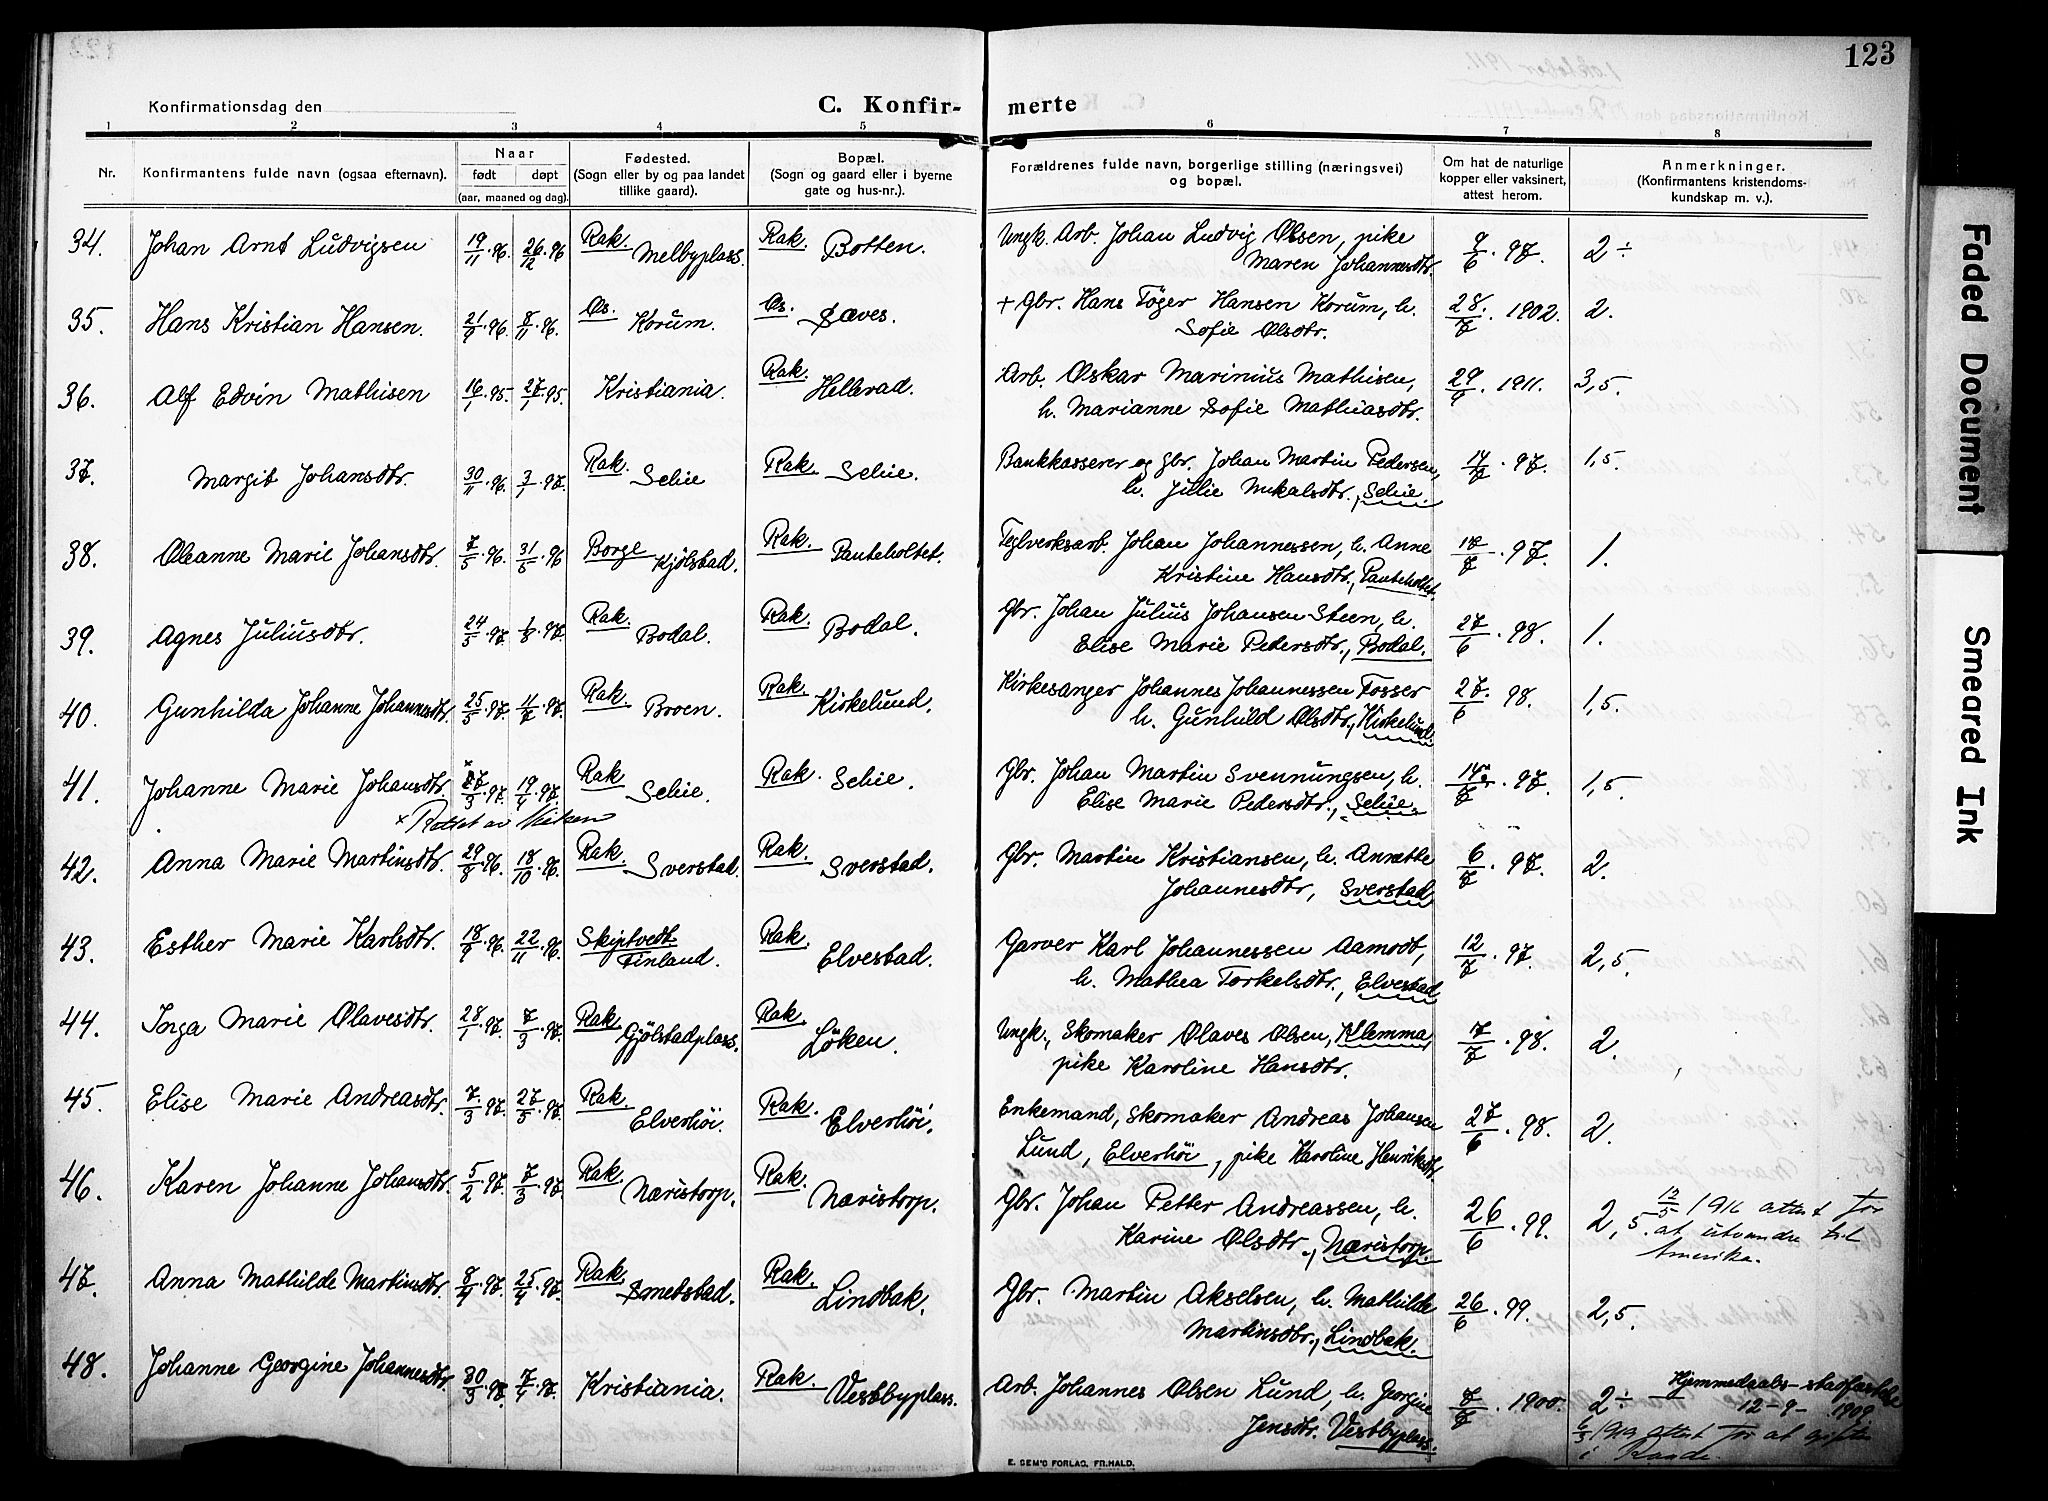 123
Konfirmationsdag den
C. Konfir- merte
1 2 3 4 5 6 7 8
Nr.
Konfirmantens fulde navn (ogsaa efternavn).
Naar
født døpt
(aar, maaned og dag).
Fødested.
(Sogn eller by og paa landet
tillike gaard).
Bopæl.
(Sogn og gaard eller i byerne
gate og hus-nr.).
Forældrenes fulde navn, borgerlige stilling (næringsvei)
og bopæl.
Om hat de naturlige
kopper eller vaksinert,
attest herom.
Anmerkninger.
(Konfirmantens kristendoms-
kundskap m. v.).
34. Johan Arnt Ludvigsen 19/11.96 26/12.96 Rak. Melbyplass. Rak. Botten. Ungk. Arb. Johan Ludvig Olsen, pike 9/6.97. 2÷
Maren Johannesdtr.
35. Hans Kristian Hansen. 21/9.96 8/11.96. Os. Korum. Os. Sæves. + Gbr. Hans Töger Hansen Korum, h. 28/7.1902. 2.
Sofie Olsdtr.
36. Alf Edvin Mathisen 16/1.95. 27/1.95. Kristiania. Rak. Hellerad. Arb. Oskar Marinius Mathisen, 29/9.1911. 3,5.
h. Marianne Sofie Mathiasdtr.
37. Margit Johansdtr. 30/11.96. 3/1.97. Rak. Selie Rak. Selie. Bankkasserer og gbr. Johan Martin Pedersen, 14/7.97. 1,5.
h. Julie Mikalsdtr., Selie.
38. Oleanne Marie Johansdtr. 7/5.96. 31/5.96 Borge Kjölstad. Rak. Panteholtet. Teglverksarb. Johan Johannessen, h. Anne 17/7.97. 1.
Kristine Hansdtr., Panteholtet.
39. Agnes Juliusdtr. 24/5.97. 1/8.97. Rak. Bodal. Rak. Bodal. Gbr. Johan Julius Johansen Steen, h. 27/6.98. 1.
Elise Marie Pedersdtr., Bodal.
40. Gunhilda Johanne Johannesdtr. 25/5.97. 11/7.97. Rak. Broen. Rak. Kirkelund. Kirkesanger Johannes Johannessen Fosser 27/6.98. 1,5.
h. Gunhild Olsdtr., Kirkelund.
41. Johanne Marie Johansdtr. ×27/3.97. 19/4.97. Rak Selie. Rak. Selie. Gbr. Johan Martin Svennungsen, h. 14/7.97. 1,5.
Elise Marie Pedersdtr., Selie.
× Rettet av
42. Anna Marie Martinsdtr. 29/8.96. 18/10.96. Rak. Sverstad. Rak. Sverstad. Gbr. Martin Kristiansen, h. Anrætte 6/7.97. 2.
Johannesdtr, Sverstad
43. Esther Marie Karlsdtr. 18/9.96. 22/11.96. Skiptvedt. Finland. Rak. Elvestad. Garver Karl Johannessen Aamodt, 12/7.97. 2,5.
h. Mathea Torkelsdtr., Elvestad
44. Inga Marie Olavesdtr. 28/1.97. 7/3.97. Rak. Gjölstadplass. Rak. Löken. Ungk., Skomaker Olaves Olsen, Klemma, 7/7.98. 2.
pike Karoline Hansdtr.
45. Elise Marie Andreasdtr. 7/3.97. 27/5.97. Rak. Elverhöi. Rak. Elverhöi. Enkemand, Skomaker Andreas Johansen 27/6.98. 2.
Lund, Elverhöi, pike Karoline Henriksdtr.
46. Karen Johanne Johansdtr. 5/2.97. 7/3.97. Rak. Næristorp. Rak. Næristorp. Gbr. Johan Petter Andreassen, h. 26/6.99. 2,5. 12/5 1916 attest for
Karine Olsdtr., Næristorp. at utvandre til
Amerika.
47. Anna Mathilde Martinsdtr. 8/4.97. 25/4.97. Rak. Smedstad. Rak. Lindbak. Gbr. Martin Akselsen, h. Mathilde 26/6.99. 2,5.
Martinsdtr., Lindbak.
48. Johanne Georgine Johannesdtr. 30/3.97. 7/4.97. Kristiania. Rak. Vestbyplass. Arb. Johannes Olsen Lund, h. Georgine 7/7.1900. 2÷ Hjemmedaabs-stadfæstelse
12-9-1909
Jensdtr. Vestbyplass. 6/3 1919 attest for at gifte
i Raade.
E. SEM'S FORLAG, FR.HALD.
Faded Document
Smeared Ink